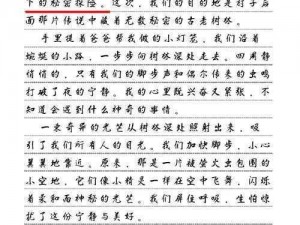 下的秘密探险。这次，我们的目的地是村子后
面那片传说中藏着无数秘密的古老树林。
手里提着爸爸帮我做的小灯笼，我们沿着
蜿蜒的小路，一步步向树林深处走去。四周静
悄悄的，只有我们的脚步声和偶尔传来的虫鸣
打破了夜的宁静。我的心里既兴奋又紧张，不
知道会遇到什么神奇的事情。
一束奇异的光芒从树林深处照射出来，吸
引了我们所有人的目光。我们加快脚步，小心
翼翼地靠近。原来，那是一片被萤火虫包围的
小空地，它们像小精灵一样在空中飞舞，闪烁
着柔和而神秘的光芒。我们屏住呼吸，生怕惊
扰了这份宁静与美好。